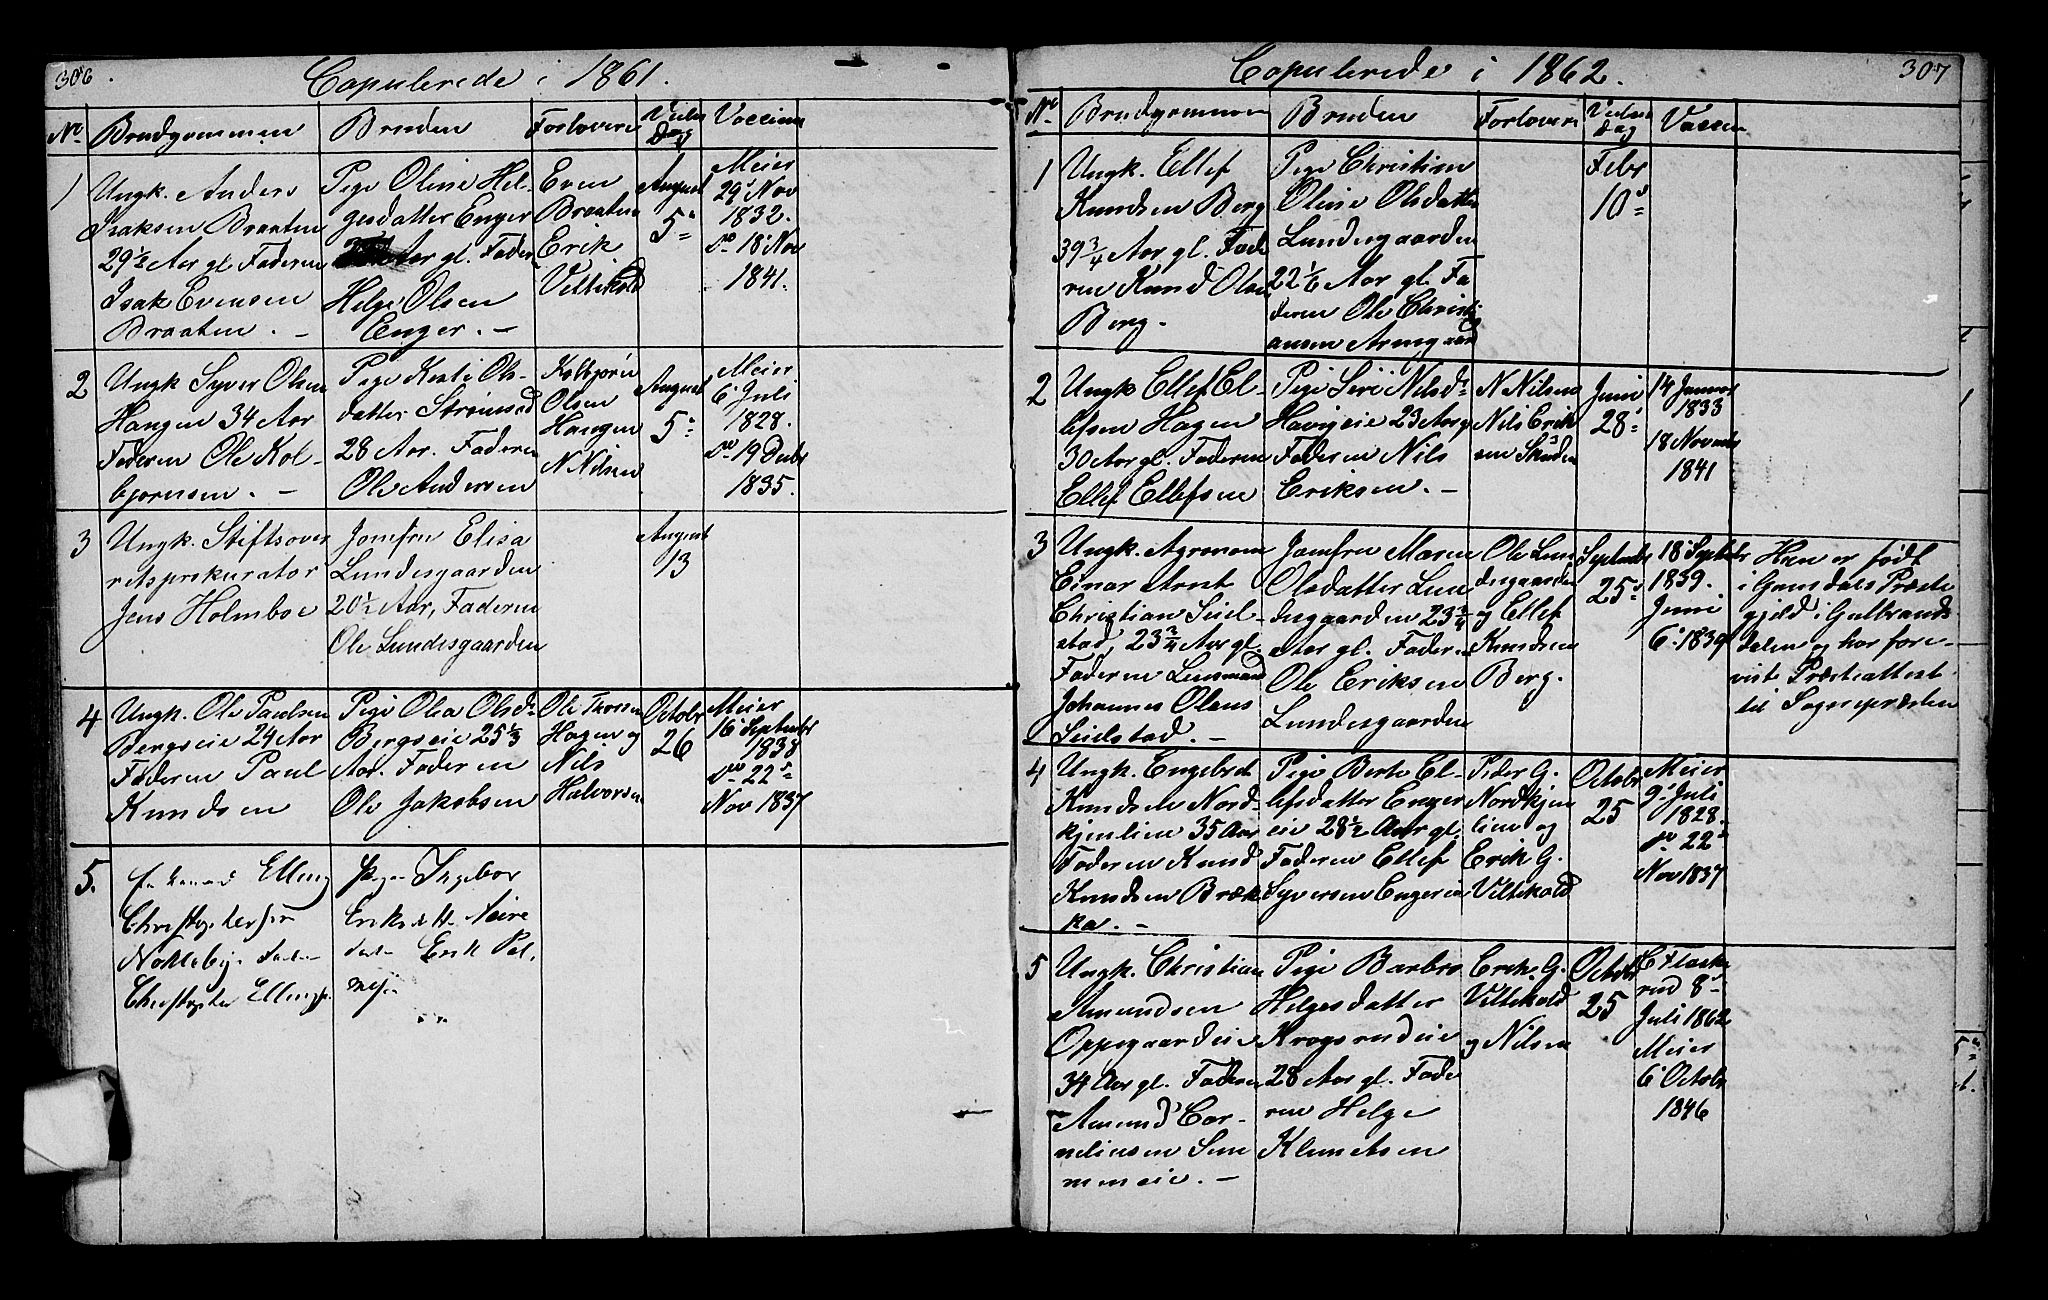 306.
Capulerede i 1861.
No.
Brudgommen
Bruden
Forlovere
Vielses
Dag
Vaccine
1
Ungk. Anders
Isaksen Braaten
29 1/2 Aar gl. Faderen
Isak Evensen
Braaten. –
Pige Oline Hel-
gesdatter Enger
Aar gl. Faderen
Helge Olsen
Enger. –
Even
Braaten
Erik
Viltekold
August
5te
Meier
29 Nov
1832.
do 18 Nov
1841.
2
Ungk Syver Olsen
Haugen 34 Aar
Faderen Ole Kol-
bjørnsen. –
Pige Kirsti Ols-
datter Strømsod
28 Aar. Faderen
Ole Andersen
Kolbjørn
Olsen
Haugen
N Nilsen
August
5te
Meier
6 Juli
1828.
do 19 Decbr
1835.
3
Ungk. Stiftsover
retsprokurator
Jens Holmboe
Jomfru Elisa
Lundesgaarden
20 1/2 Aar, Faderen
Ole Lundesgaarden
August
13
4
Ungk. Ole Paulsen
Bergseie 24 Aar
Faderen Paul
Knudsen
Pige Olea Olsdr
Bergseie 25 1/3
Aar. Faderen
Ole Jakobsen
Ole Thorsen
Hagen og
Nils
Halvorsen
Octobr
26
Meier
16 Septembr
1838
do 22
Nov 1837
5.
Elling
Christophersen
Nokleby. Fader
Christopher Ellings.
Pige Ingebor
Eriksdtr
Fader Erik Pal.
307
Capulerede i 1862.
No.
Brudgommen
Bruden
Forlovere
Vielses
Dag
Vaccin
1
Ungk. Ellef
Knudsen Berg
39 3/4 Aar gl. Fade
ren Knud Olsen
Berg.
Pige Christine
Oline Olsdatter
Lundesgaarden
22 1/2 Aar gl. Fa
deren Ole Christi
ansen Armgaard
Febr
10
2
Ungk Ellef El-
lefsen Hagen
30 Aar gl. Faderen
Ellef Ellefsen
Pige Siri Nilsdr
Havigeie 23 Aar g
Faderen Nils
Eriksen. –
N Nilsen
Nils Erik
sen Skuden
Juni
28
14 Januar
1833
18 Novembr
1841
3
Ungk. Agronom
Einar Arnt
Christian Seiel-
stad, 23 3/4 Aar gl.
Faderen Lensmand
Johannes Olaus
Seielstad. –
Jomfru Maren
Olsdatter Lun
desgaarden 23 3/4
Aar gl. Faderen
Ole Eriksen
Lundesgaarden
Ole Lun
desgaarden
og Ellef
Knudsen
Berg.
Septembr
25
18 Septembr
1839.
Juni
6 1839
Han er født
i Gausdals Præste
gjeld i Gulbrands
dalen og har fore-
vist Præsteattest
til Sognepræsten
4
Ungk. Engebret
Knudsen Nord-
kjenlien 35 Aar
Faderen Knud
Knudsen Bræk
ka. –
Pige Berte El-
lefsdatter Enger
eie 28 1/2 Aar gl.
Faderen Ellef
Syversen Engereie
Peder G.
Nordkjen
lien og
Erik G.
Viltekold
Octobr
25
Meier
9 Juli
1828.
do 22
Nov 1837
5
Ungk. Christian
Amundsen
Oppegaardeie
34 Aar gl. Faderen
Amund Cor-
neliusen Sem
meneie. –
Pige Barbro
Helgesdatter
Krogsrudeie
28 Aar gl. Fade
ren Helge
Klemetsen
Erik. G.
Viltekold
og Nilsen
Octobr
25
C Flaske
rud 8
Juli 1862
Meier
6 Octobr
1846